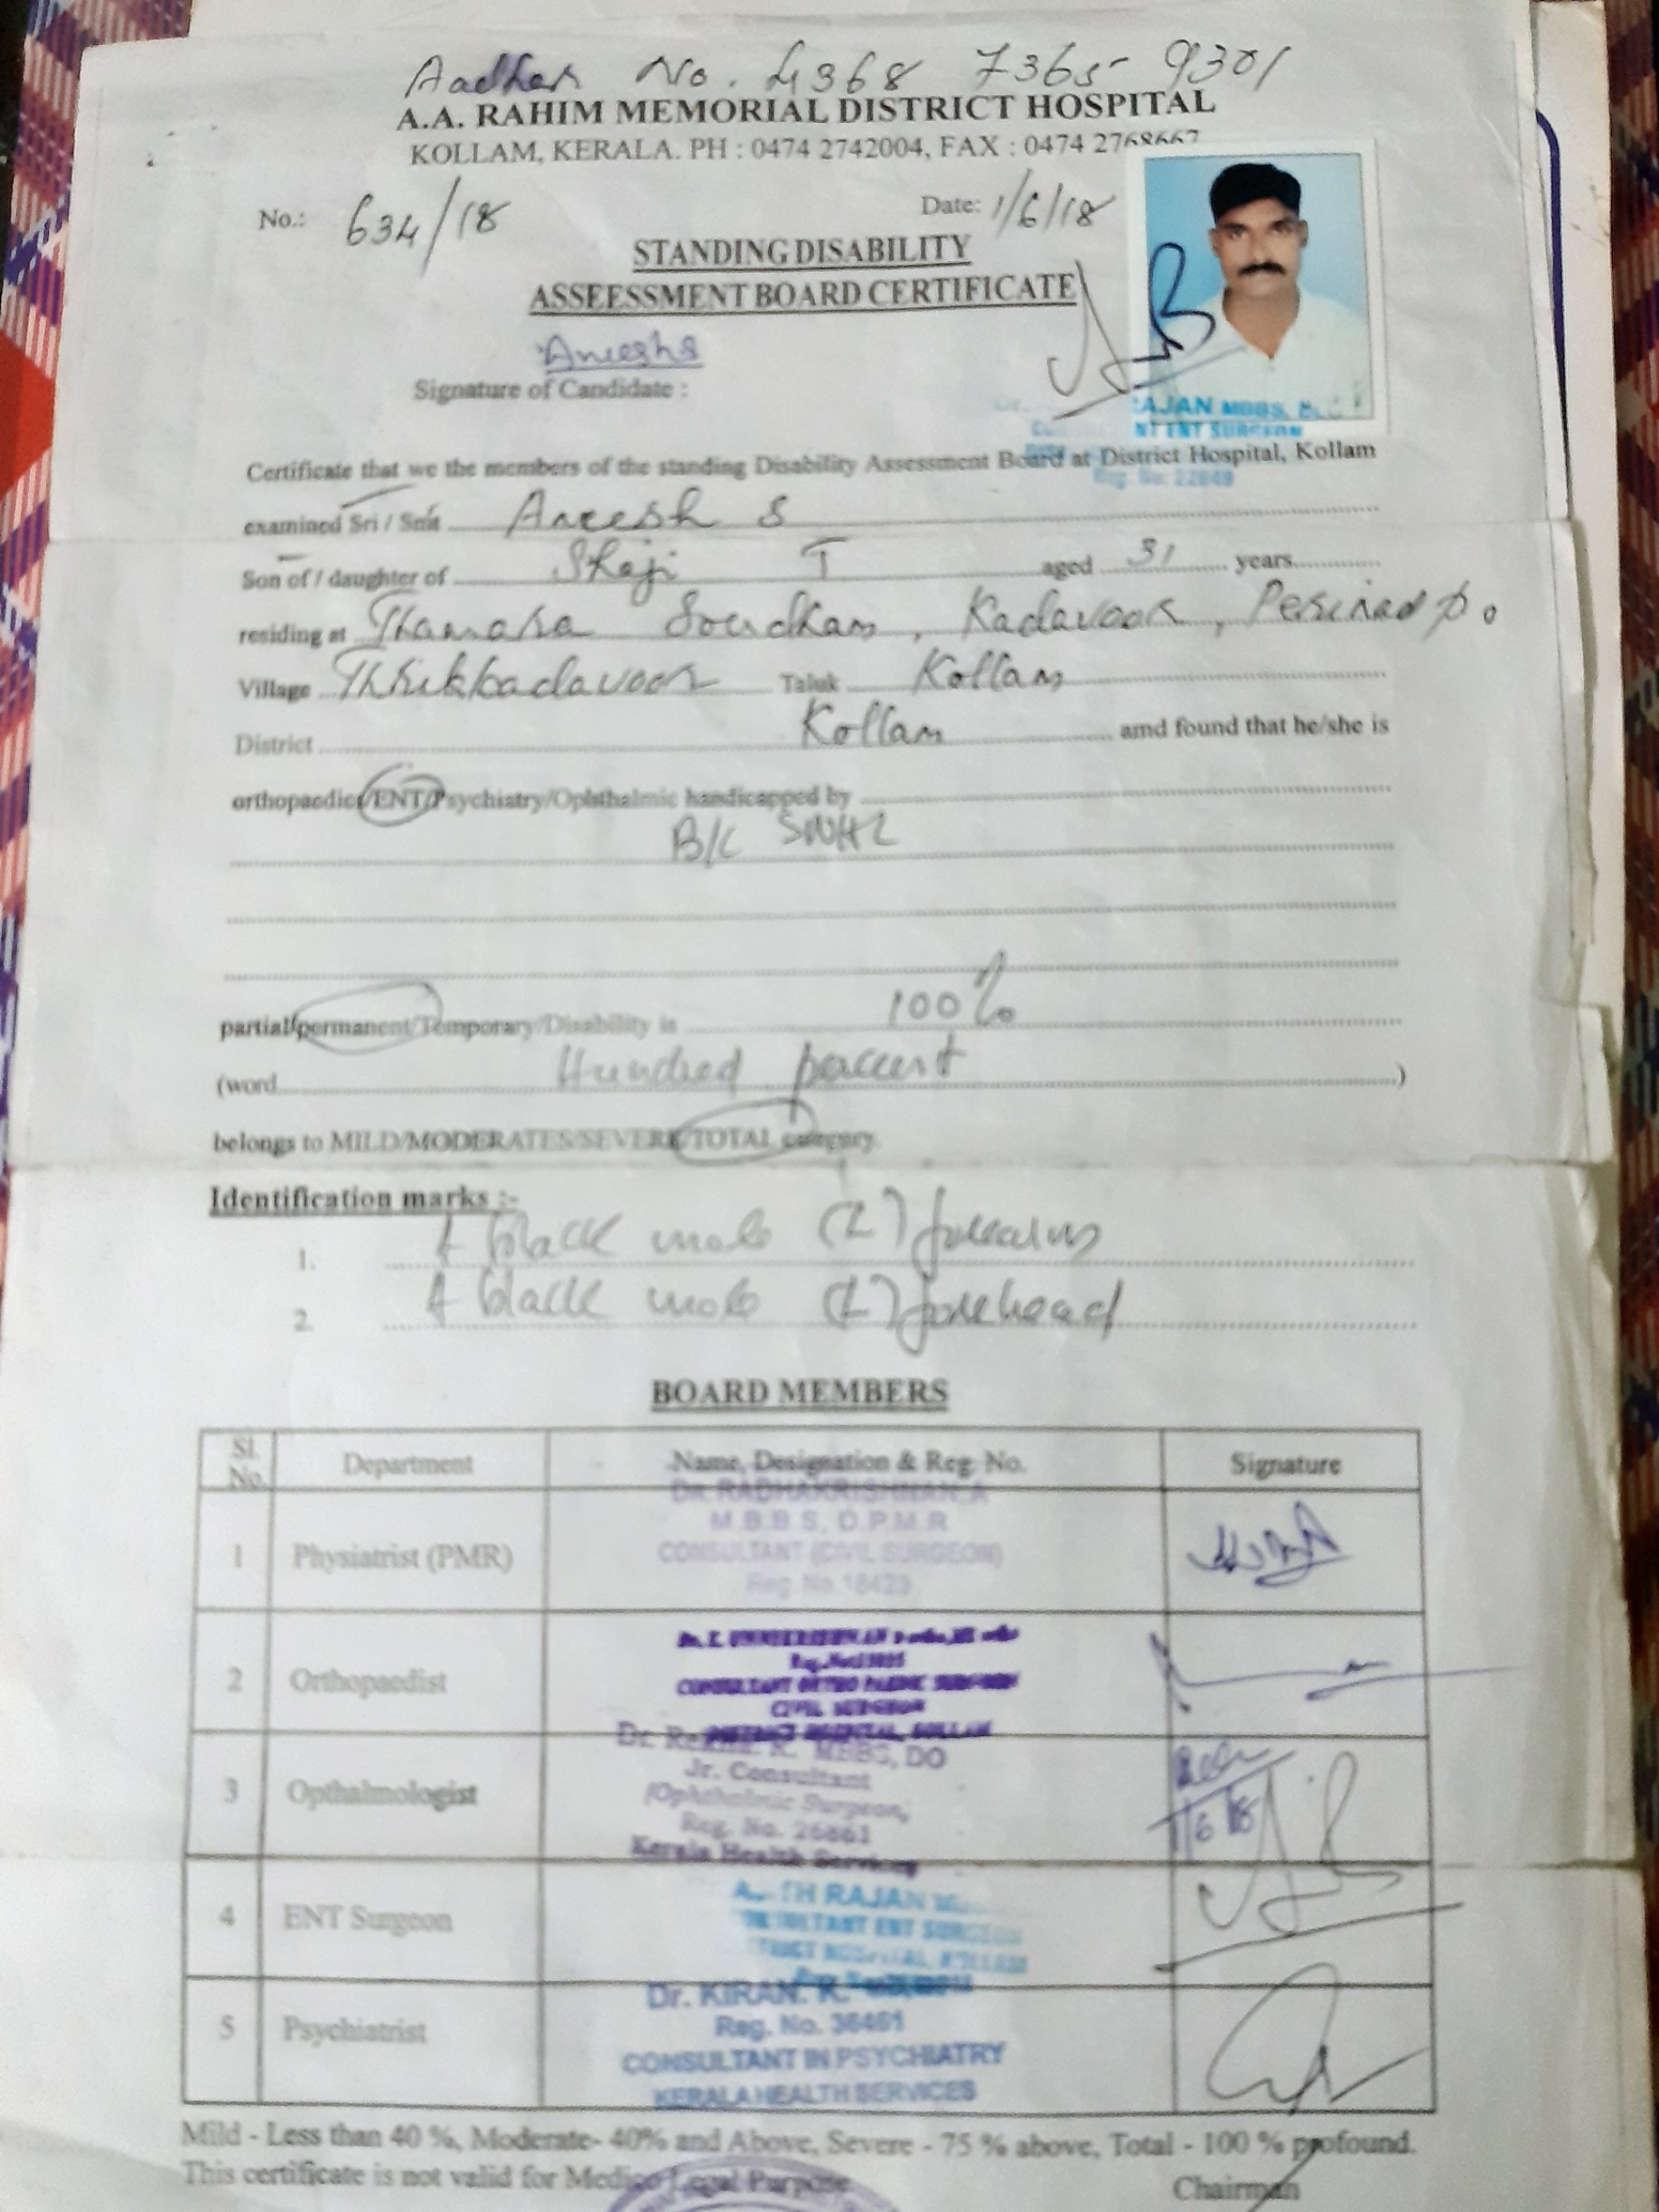 Aadhar No. 4368 7365 9301
A.A. RAHIM MEMORIAL DISTRICT HOSPITAL
KOLLAM, KERALA. PH : 0474 2742004, FAX : 0474 2768667
No.: 634/18 Date: 1/6/18
STANDING DISABILITY
ASSEESSMENT BOARD CERTIFICATE
Aneesh S
Signature of Candidate :
RAJAN MBBS,
ENT SURGEON
Certificate that we the members of the standing Disability Assessment Board at District Hospital, Kollam
Reg. No: 22649
examined Sri / Smt Aneesh S
Son of / daughter of Shaji T aged 31 years
residing at Thamara Soudham, Kadavoor, Perinad p.o
Village Thrikkadavoor Taluk Kollam
District Kollam amd found that he/she is
orthopaedics/ENT/Psychiatry/Ophthalmic handicapped by
B/L SNHL
partial/permanent/Temporary/Disability is 100%
(word Hundred percent )
belongs to MILD/MODERATES/SEVERE/TOTAL category
Identification marks :-
1. A black mole (L) forearm
2. A black mole (L) forehead
BOARD MEMBERS
Sl. No. Department Name, Designation & Reg. No. Signature
Dr. RADHAKRISHNAN.A
M.B.B.S, D.P.M.R
1 Physiatrist (PMR) CONSULTANT (CIVIL SURGEON)
Reg.No.18423
UNNIKRISHNAN
2 Orthopaedist CONSULTANT ORTHO PAEDIC SURGEON
CIVIL SURGEON
DISTRICT HOSPITAL, KOLLAM
Dr. K. MBBS, DO
Jr. Consultant
3 Opthalmologist (Ophthalmic Surgeon)
Reg. No. 26861 1/6/18
Kerala Health Services
RAJAN
4 ENT Surgeon CONSULTANT ENT SURGEON
DISTRICT HOSPITAL, KOLLAM
Dr. KIRAN. K.
5 Psychiatrist Reg. No. 36461
CONSULTANT IN PSYCHIATRY
KERALA HEALTH SERVICES
Mild - Less than 40 %, Moderate- 40% and Above, Severe - 75 % above, Total - 100 % profound.
This certificate is not valid for Medico Legal Purpose
Chairman